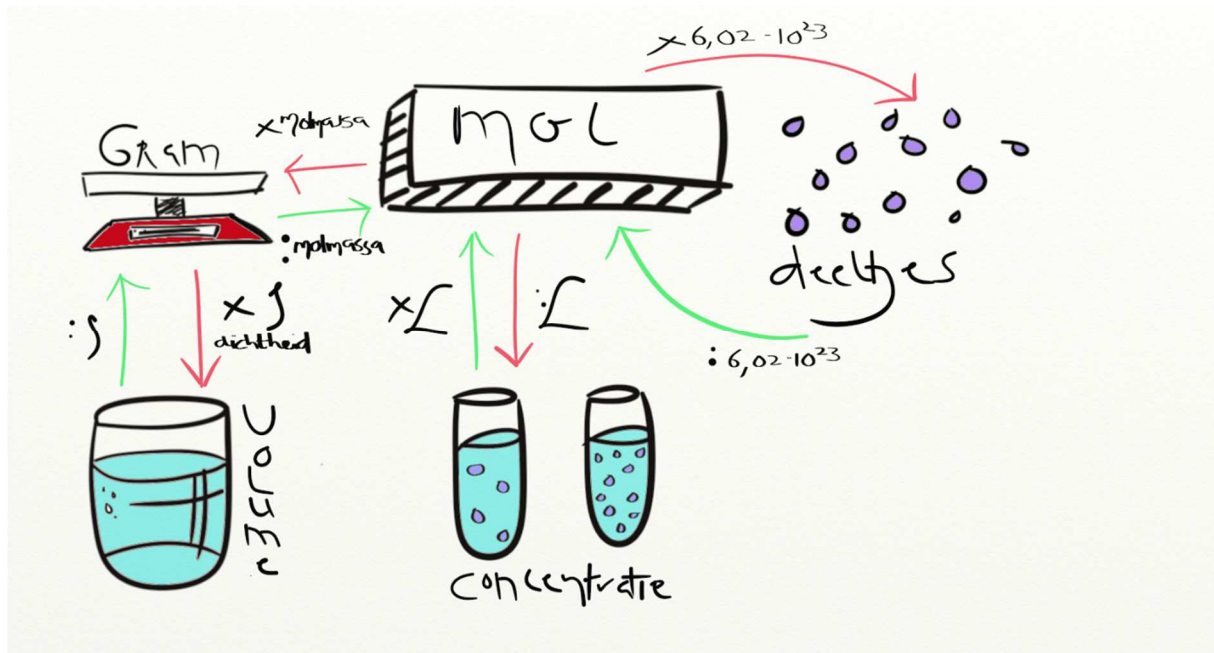 × 6,02 · 10²³
mol
× molmassa
Gram
: molmassa
deeltjes
× ρ
dichtheid
: ρ
× L
: L
: 6,02 · 10²³
Volume
concentratie